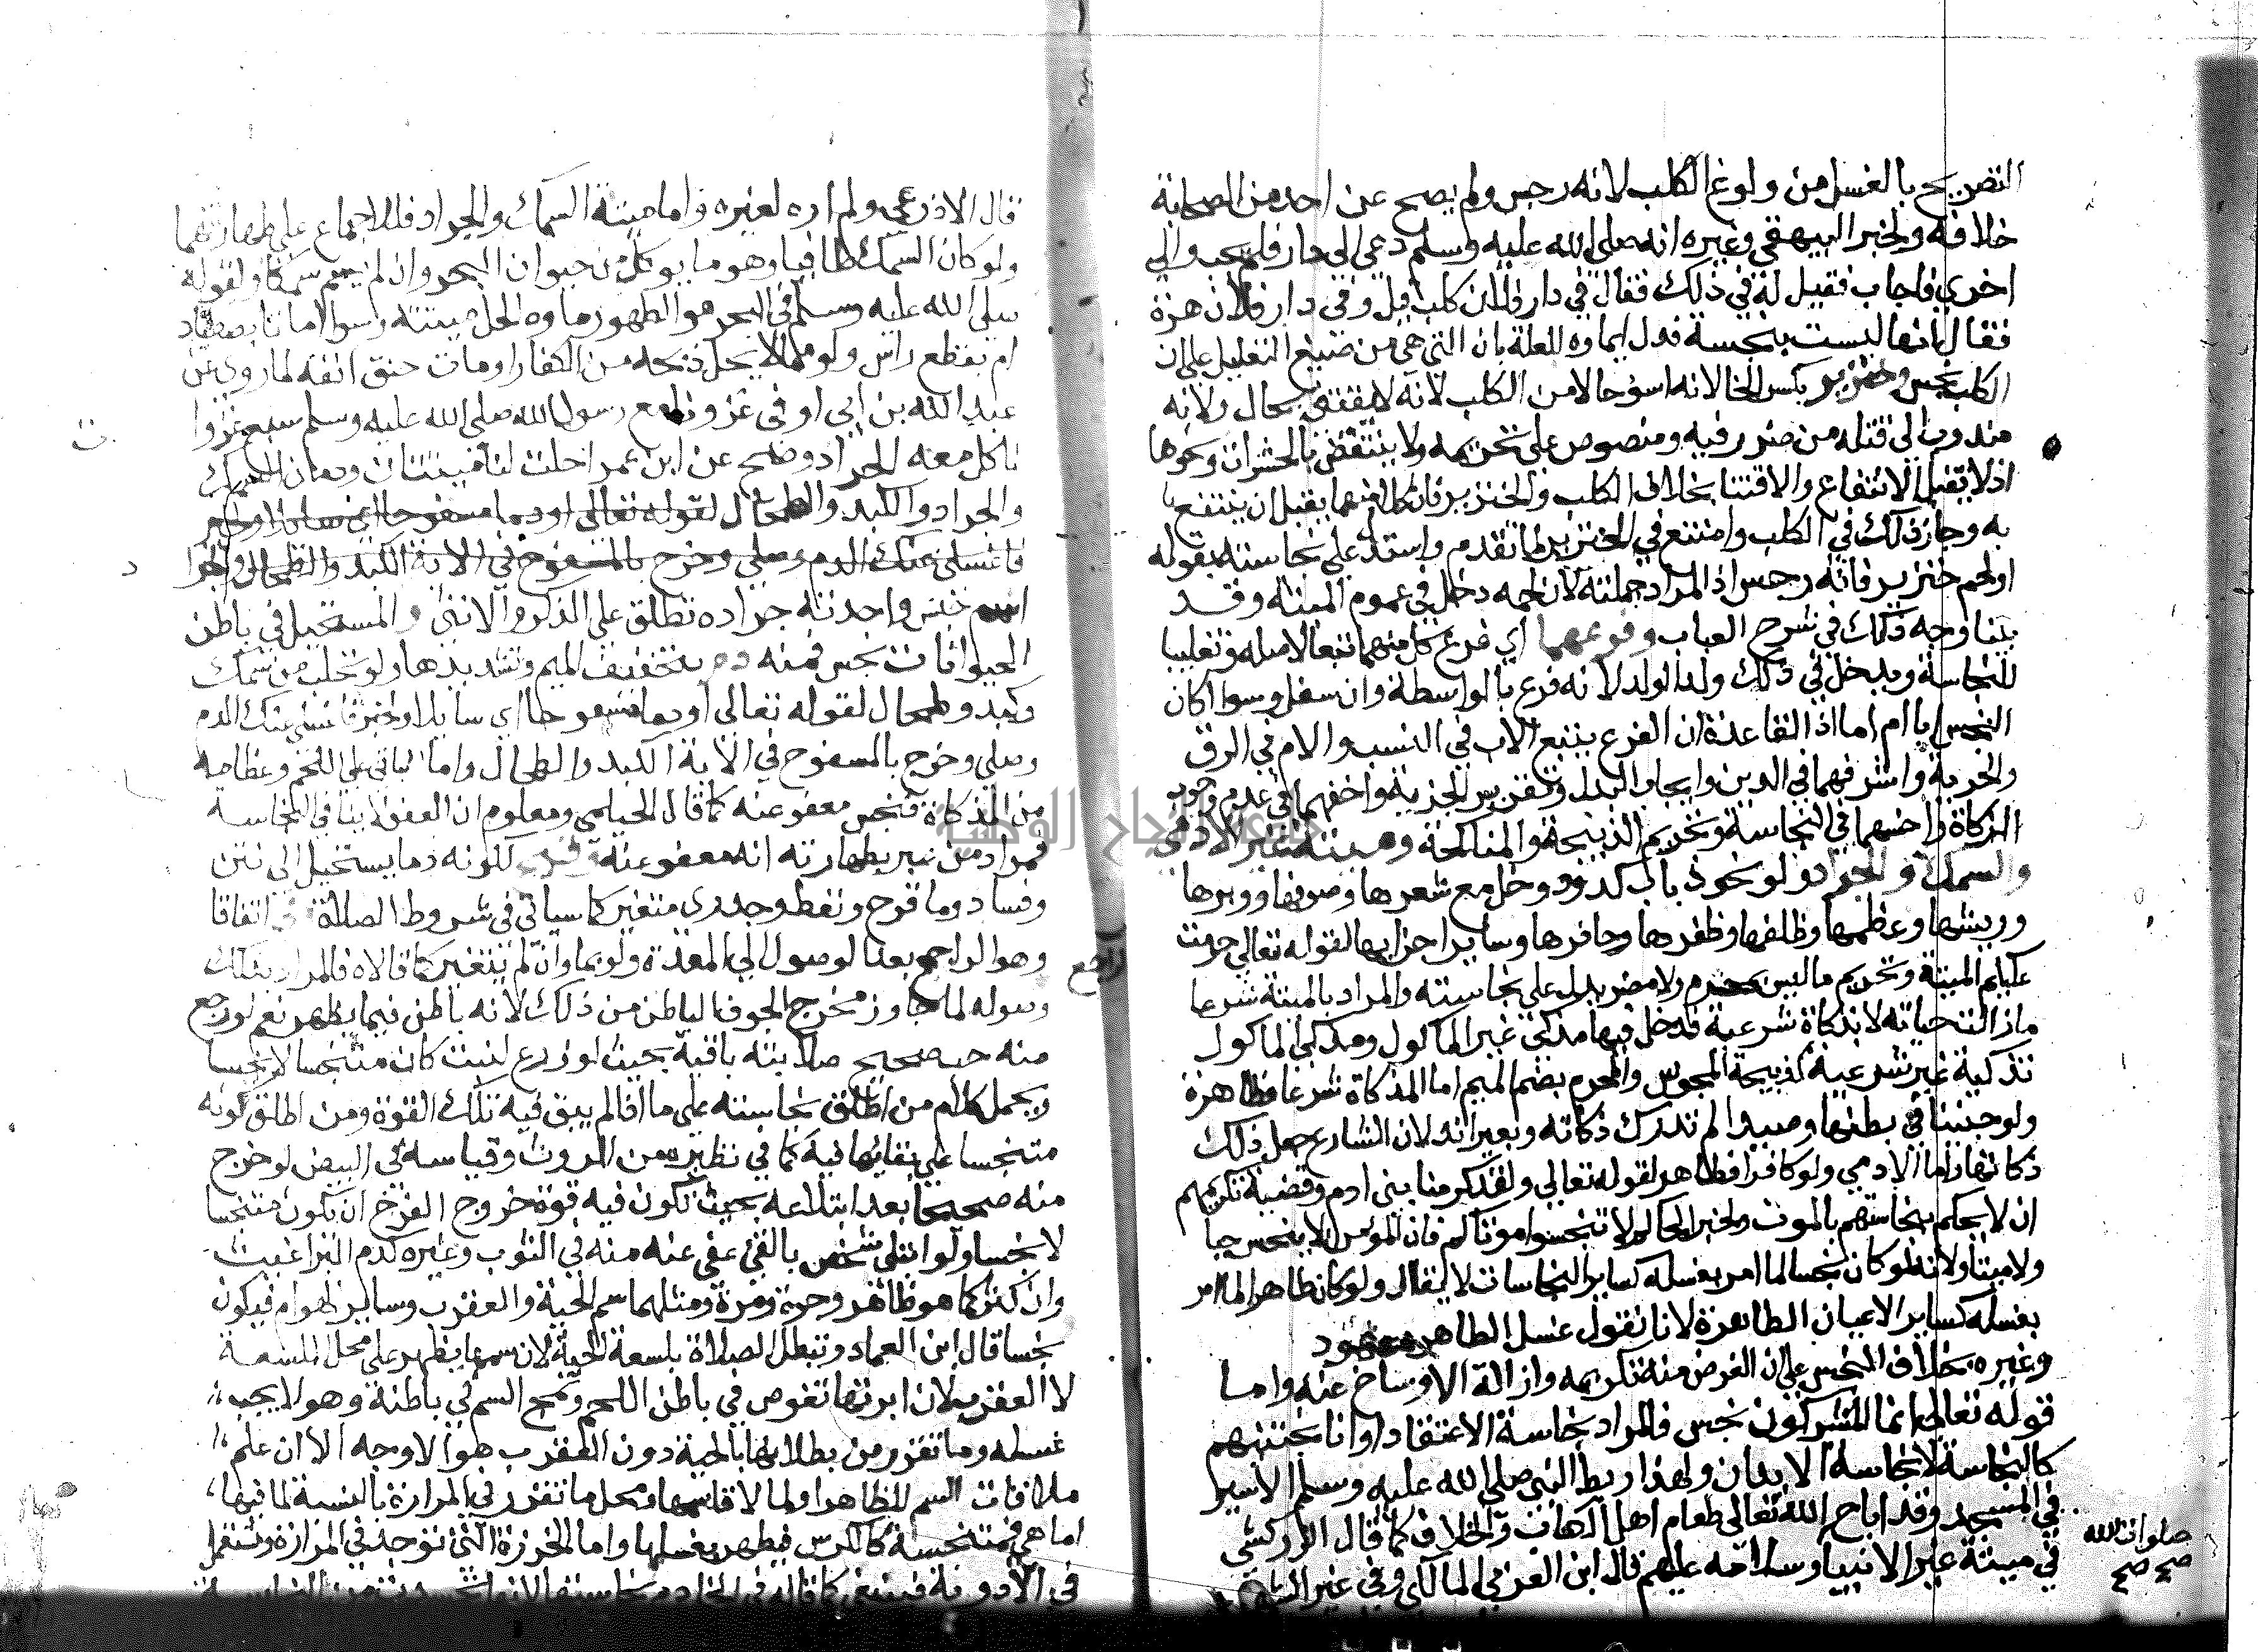 التصريح بالغسل من ولوغ الكلب لانه رجس ولم يصح عن احد من الصحابة
خلافه ولخبر البيهقي وغيره انه صلى الله عليه وسلم دعي الى دار فلم يجب والي
اخري فاجاب فقيل له في ذلك فقال في دار فلان كلب قيل وفي دار فلان هرة
فقال انها ليست بنجسة فدل ايماوه للعلة بان التي هي من صيغ التعليل على ان
الكلب نجس وخنزير بكسر الخا لانه اسوحالا من الكلب لانه لا يقتنى بحال ولانه
مندوب الى قتله من غير ضرر فيه ومنصوص على تحريمه ولا ينتقض بالحشرات ونحوها
اذ لا تقبل الانتفاع والاقتنا بخلاف الكلب والخنزير فان كلا منهما يقبل ان ينتفع
به وجاز ذلك في الكلب وامتنع في الخنزير لما تقدم واستدل على نجاسته بقوله
اولحم خنزير فانه رجس اذ المراد جملته لان لحمه دخل في عموم الميتة وقد
بينا وجه ذلك في شرح العباب وفرعهما اي فرع كل منهما تبعا لاصله وتغليبا
للنجاسة ويدخل في ذلك ولد الولد لانه فرع بالواسطة وان سفل وسوا اكان
النجس ابا ام اما اذ القاعدة ان الفرع يتبع الاب في النسب والام في الرق
والحرية واشرفهما في الدين وايجاب البدل وتقرير الجزية واخفهما في عدم وجوب
الزكاة واخسهما في النجاسة وتحريم الذبيحة والمناكحة وميتة غير الادمي
والسمك والجراد ولو نحو ذباب كدود وخل مع شعرها وصوفها ووبرها
وريشها وعظمها وظلفها وظفرها وحافرها وساير اجزايها لقوله تعالى حرمت
عليكم الميتة وتحريم ما ليس بمحترم ولا مضر يدل على نجاسته والمراد بالميتة شرعا
ما زالت حياته لا بذكاة شرعية فدخل فيها مذكى غير الماكول ومذكى الماكول
تذكية غير شرعية كذبيحة المجوسي والمحرم بضم الميم اما المذكاة شرعا فطاهرة
ولو جنينا في بطنها وصيدا لم تدرك ذكاته وبعيرا ند لان الشارع جعل ذلك
ذكاتها واما الادمي ولو كافرا فطاهر لقوله تعالى ولقد كرمنا بني ادم وقضية تكريمهم
ان لا يحكم بنجاستهم بالموت ولخبر الحاكم لا تنجسوا موتاكم فان المؤمن لا ينجس حيا
ولا ميتا ولانه لو كان نجسا لما امر بغسله كساير النجاسات لا يقال ولو كان طاهرا لما امر
بغسله كساير الاعيان الطاهرة لانا نقول غسل الطاهر معهود
وغيره بخلاف النجس على ان الغرض منه تكريمه وازالة الاوساخ عنه واما
قوله تعالى انما المشركون نجس فالمراد نجاسة الاعتقاد او انا نجتنبهم
كالنجاسة لا نجاسة الابدان ولهذا ربط النبي صلى الله عليه وسلم الاسير
في المسجد وقد اباح الله تعالى طعام اهل الكتاب والخلاف كما قال الزركشي
في ميتة غير الانبيا وسلامه عليهم قال ابن العربي المالكي وفي غير
صلوات الله
صح صح
قال الاذرعي ولم اره لغيره واما ميتة السمك والجراد فللاجماع على طهارتهما
ولو كان السمك طافيا وهو ما يوكل من حيوان البحر وان لم يسم سمكا ولقوله
صلى الله عليه وسلم في البحر هو الطهور ماوه الحل ميتته وسوا امات باصطياد
ام بقطع راس ولو ممن لا يحل ذبحه من الكفار او مات حتف انفه لما روي عن
عبد الله بن ابي اوفى غزونا مع رسول الله صلى الله عليه وسلم سبع غزوات
ناكل معه الجراد وصح عن ابن عمر احلت لنا ميتتان ودمان السمك
والجراد والكبد والطحال لقوله تعالى او دما مسفوحا اي سايلا ولخبر
فاغسلي عنك الدم وصلي وخرج بالمسفوح في الاية الكبد والطحال والجراد
اسم جنس واحدته جراده تطلق على الذكر والانثى والمستحيل في باطن
الحيوانات نجس فمنه دم بتخفيف الميم وتشديدها ولو تحلب من سمك
وكبد وطحال لقوله تعالى او دما مسفوحا اي سايلا ولخبر فاغسلي عنك الدم
وصلي وخرج بالمسفوح في الاية الكبد والطحال واما الباقي على اللحم وعظامه
من المذكاة فنجس معفو عنه كما قال الحليمي ومعلوم ان العفو لا ينافي النجاسة
فمراد من عبر بطهارته انه معفو عنه وقيح لكونه دما يستحيل الى نتن
وفساد وما قروح ونفط وجدري متغير كما سياتي في شروط الصلاة وقي اتفاقا
وهو الراجع بعد الوصول الى المعدة ولو بما وان لم يتغير كما قالاه فالمراد بذلك
وصوله لما جاوز مخرج الحرف الباطن من ذلك لانه باطن فيما يظهر نعم لو رجع
منه حب صحيح صلابته باقية بحيث لو زرع لنبت كان متنجسا لا نجسا
ويحمل كلام من اطلق نجاسته على ما اذا لم يبق فيه تلك القوة ومن اطلق كونه
متنجسا على بقائها فيه كما في نظيره من الروث وقياسه في البيض لو خرج
منه صحيحا بعد ابتلاعه بحيث تكون فيه قوة خروج الفرخ ان يكون متنجسا
لا نجسا ولو ابتلي شخص بالقي عفي عنه منه في الثوب وغيره كدم البراغيث
وان كثر كما هو ظاهر وجرة ومرة ومثلهما سم الحية والعقرب وساير الهوام فيكون
نجسا قال ابن العماد وتبطل الصلاة بلسعة الحية لان سمها يظهر على محل اللسعة
لا العقرب لان ابرتها تغوص في باطن اللحم وتمج السم في باطنه وهو لا يجب
غسله وما تقرر من بطلانها بالحية دون العقرب هو الاوجه الا ان علم
ملاقات السم للظاهر او لما لاقاه سمها ومحل ما تقرر في المرارة بالنسبة لما فيها
اما هي فمتنجسة كالكرش فيطهر بغسلها واما الخرزة التي توجد في المرارة وتستعمل
في الادوية فينبغي كما قاله في الخادم نجاستها لانها
راجع